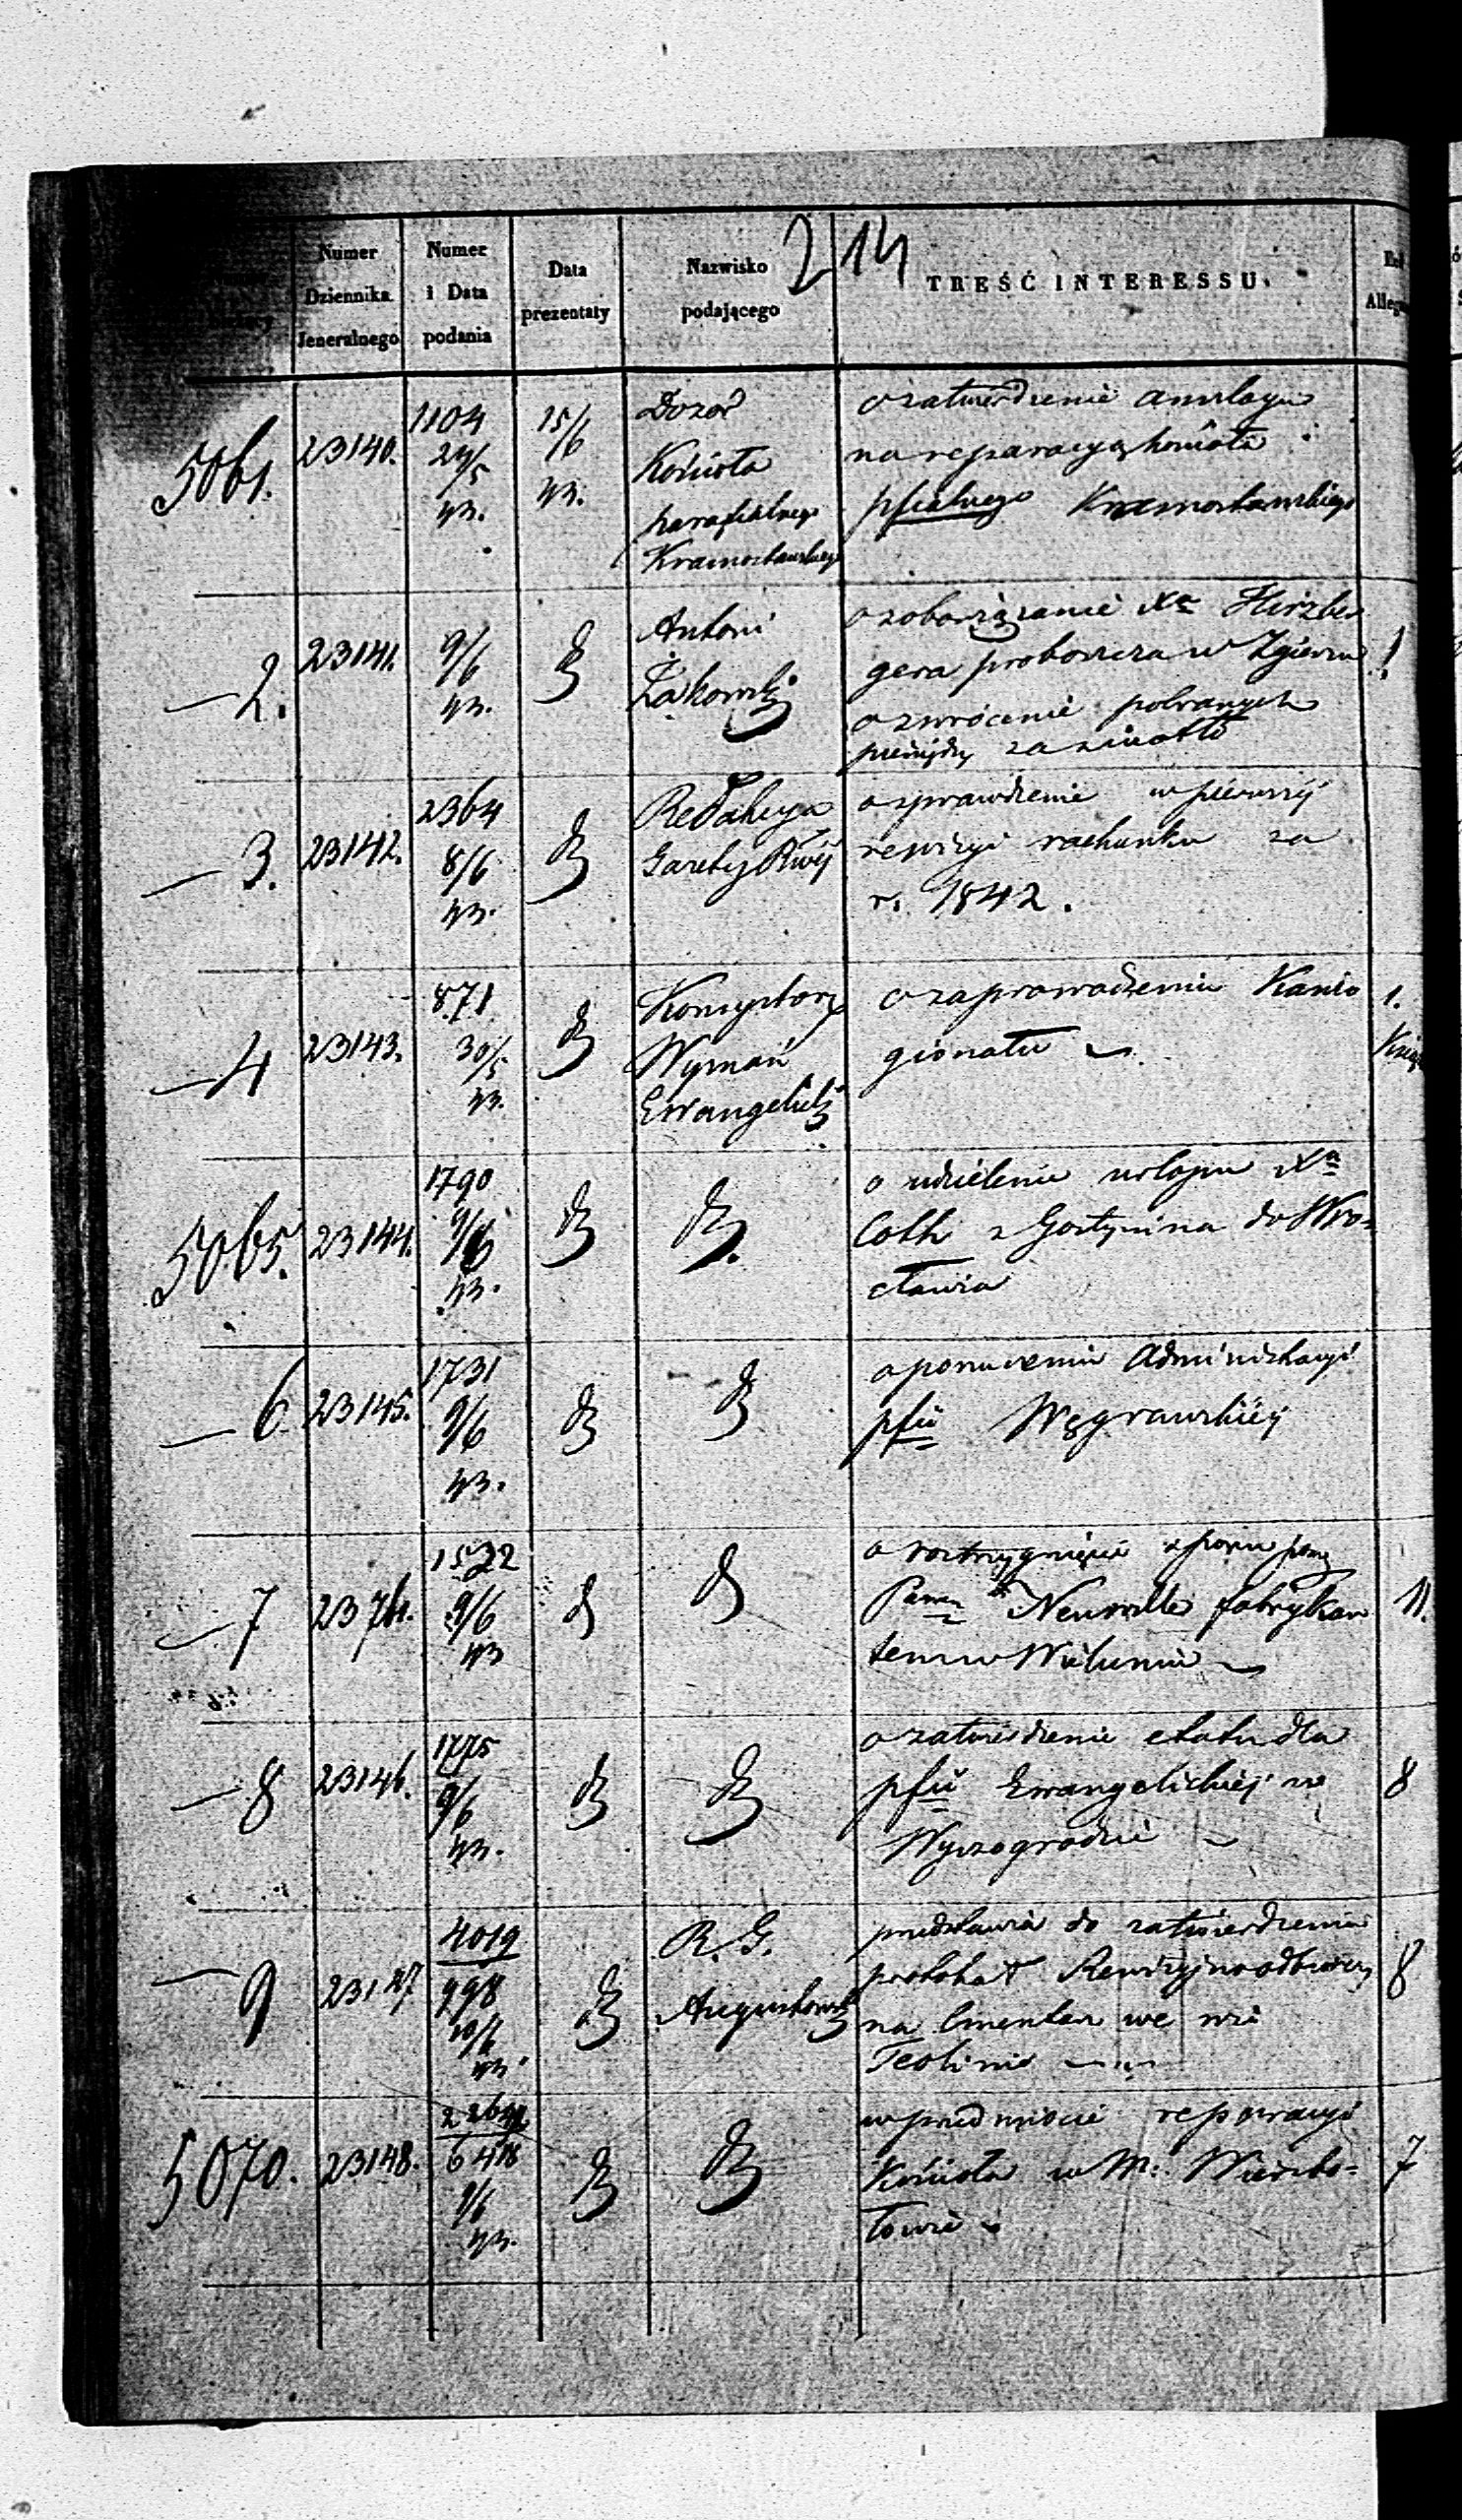 214
Numer Dziennika Jeneralnego
Numer i Data podania
Data prezentaty
Nazwisko podającego
TREŚĆ INTERESSU.
5061. 23140. 1104 24/5 43. 15/6 43.
Dozór
Kościoła
parafialnego
Krasnostawskiego
o zatwierdzenie anszlagu
na reparacyą kościoła
pfialnego Krasnostawskiego
— 2. 23141. 9/6 43. d
Antoni
Żakowski
o zobowiązanie Xa Hirzber
gera proboszcza w Zgierzu
o zwrócenie pobranych
pieniędzy za światło
1
— 3. 23142. 2364 8/6 43. d
Redakcya
Gazety Rwéj
o sprawdzenie w pierwszéj
rewizyi rachunku za
r. 1842.
— 4 23143. 871 30/5 43. d
Konsystorz
Wyznań
Ewangelicki
o zaprowadzeniu Kancy
gionału
1.
5065. 23144. 1790 9/6 43. d d.
o udzielenie urlopu Xu
Coth z Gostynina do Wro-
cławia
— 6. 23145. 1731 9/6 43. d d
o poruczeniu Administracyi
pfii Węgrowskiéj
— 7 1522 9/6 43 d d
o rozstrzygnięcie sporu
Neuville fabrykan
tem w Wieluniu
11.
— 8 23146. 1775 9/6 43. d d
o zatwierdzenie etatu dla
pfii Ewangelickiéj w
Wyszogrodzie
8
— 9 23147 4019 998 10/6 43. d
R. G.
Augustowski
przedstawia do zatwierdzenia
protokół Rewizyjno odbiorczy
na Cmentarz we wsi
Teolinie
8
5070. 23148. 6418 9/6 43. d d
w przedmiocie reparacyi
Kościoła w M: Wierzbo-
łowie
7